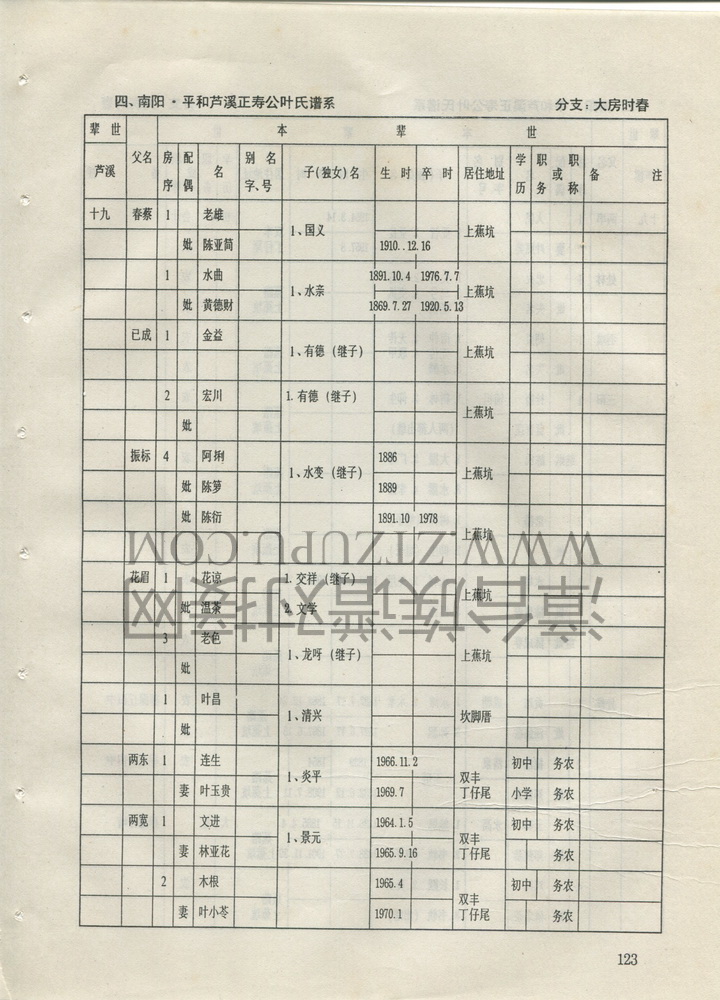 四、南阳·平和芦溪正寿公叶氏谱系 分支：大房时春
辈世 本 辈 世
芦溪 父名 房序 配偶 名 别名字、号 子(独女)名 生时 卒时 居住地址 学历 职务或职称 备注
十九 春蔡 1 老雄 1、国义 上蕉坑
妣 陈亚筒 1910..12.16
1 水曲 1、水亲 1891.10.4 1976.7.7 上蕉坑
妣 黄德财 1869.7.27 1920.5.13
已成 1 金益 1、有德（继子） 上蕉坑
2 宏川 1.有德（继子） 上蕉坑
妣
振标 4 阿琍 1、水变（继子） 1886 上蕉坑
妣 陈萝 1889
妣 陈衍 1891.10 1978 上蕉坑
花眉 1 花谅 1.交祥（继子） 上蕉坑
妣 温茶 2.文学
3 老色 1、龙呀（继子） 上蕉坑
妣
1 叶昌 1、清兴 坎脚厝
妣
两东 1 连生 1、炎平 1966.11.2 双丰丁仔尾 初中 务农
妻 叶玉贵 1969.7 小学 务农
两宽 1 文进 1、景元 1964.1.5 双丰丁仔尾 初中 务农
妻 林亚花 1965.9.16 务农
2 木根 1965.4 双丰丁仔尾 初中 务农
妻 叶小苓 1970.1 务农
123
WWW.ZTZUPU.COM
漳台族谱对接网